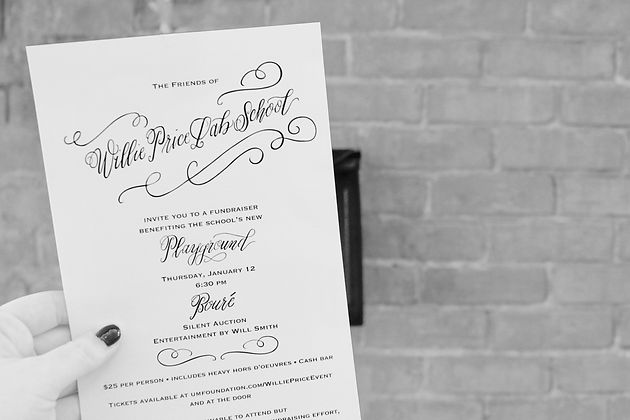 The Friends of
Willie Price Lab School
invite you to a fundraiser
benefiting the school's new
Playground
Thursday, January 12
6:30 pm
Bouré
Silent Auction
Entertainment by Will Smith
$25 per person • includes heavy hors d'oeuvres • Cash bar
Tickets available at umfoundation.com/WilliePriceEvent
and at the door
unable to attend but
raising effort,